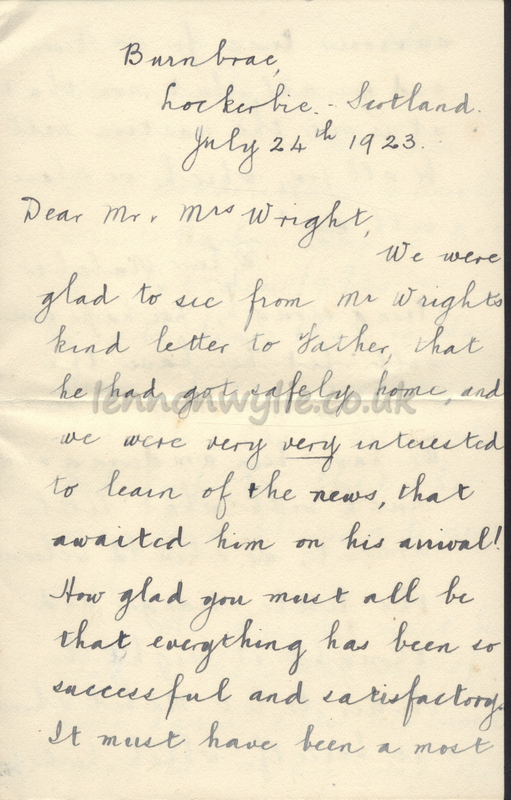 Burnbrae,
Lockerbie. - Scotland.
July 24th 1923.
Dear Mr. & Mrs Wright,
We were
glad to see from Mr Wrights
kind letter to Father, that
he had got safely home, and
lennonwylie.co.uk
we were very very interested
to learn of the news, that
awaited him on his arrival!
How glad you must all be
that everything has been so
successful and satisfactory.
It must have been a most